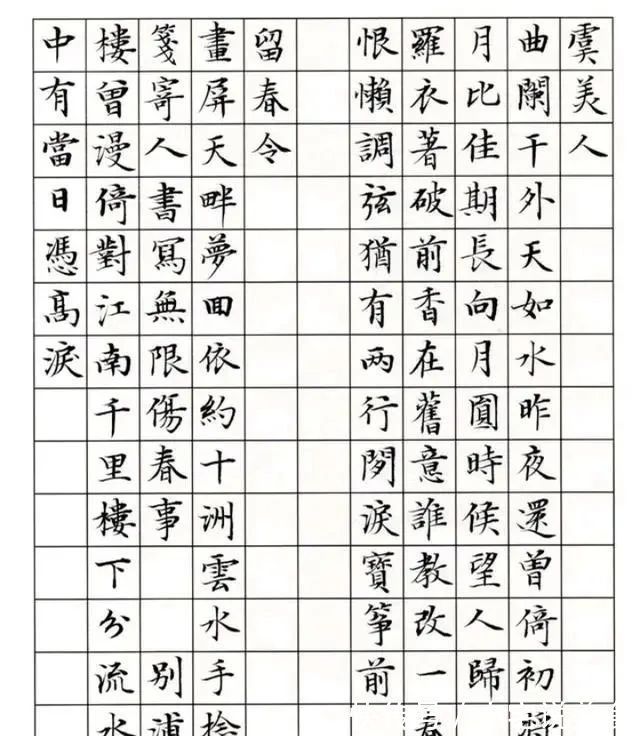 虞美人
曲闌干外天如水昨夜還曾倚初
月比佳期長向月圓時候望人歸
羅衣著破前香在舊意誰教改一春
恨懶調弦猶有两行閒淚寶箏前
留春令
畫屏天畔夢回依約十洲雲水手
箋寄人書寫無限傷春事 別浦
樓曾漫倚對江南千里樓下分流水
中有當日憑高淚